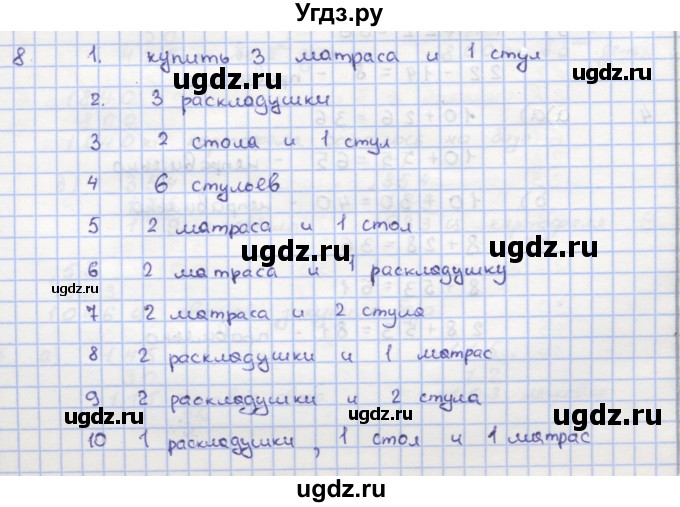 Угдз.ру
8. 1. купить 3 матраса и 1 стул
ugdz.ru ugdz.ru
2. 3 раскладушки
3 2 стола и 1 стул
ugdz.ru ugdz.ru
4 6 стульев
5 2 матраса и 1 стол
ugdz.ru ugdz.ru
6 2 матраса и 1 раскладушку
ugdz.ru ugdz.ru
7 2 матраса и 2 стула
8 2 раскладушки и 1 матрас
ugdz.ru
9 2 раскладушки и 2 стула
ugdz.ru ugdz.ru ugdz.ru
10 1 раскладушки, 1 стол и 1 матрас
ugdz.ru